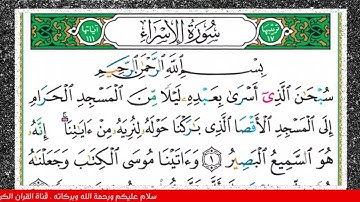 ترتيبها ١٧ سُورَةُ الْإِسْرَاءِ آياتها ١١١
بِسْمِ اللَّهِ الرَّحْمَٰنِ الرَّحِيمِ
سُبْحَانَ الَّذِي أَسْرَىٰ بِعَبْدِهِ لَيْلًا مِّنَ الْمَسْجِدِ الْحَرَامِ
إِلَى الْمَسْجِدِ الْأَقْصَا الَّذِي بَارَكْنَا حَوْلَهُ لِنُرِيَهُ مِنْ ءَايَاتِنَا إِنَّهُ
هُوَ السَّمِيعُ الْبَصِيرُ ١ وَءَاتَيْنَا مُوسَى الْكِتَابَ وَجَعَلْنَاهُ
سلام عليكم ورحمة الله وبركاته . قناة القران الكر